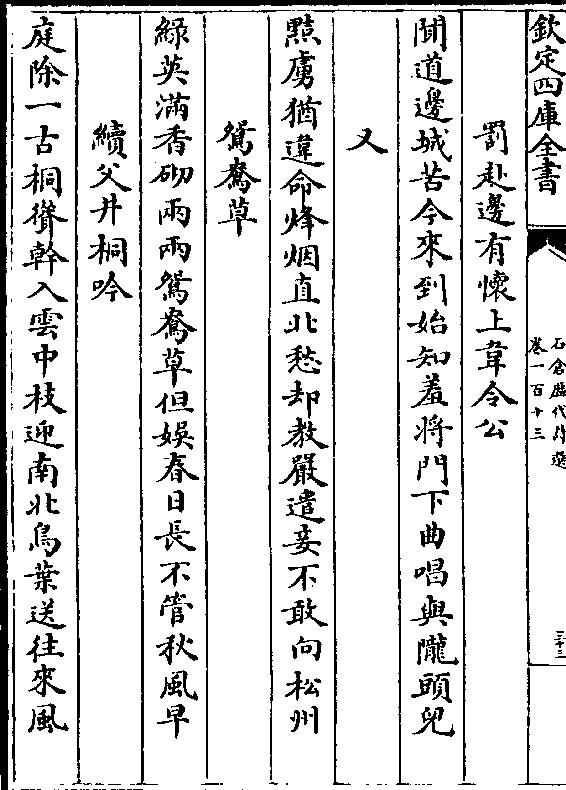 欽定四庫全書
石倉歷代詩選
卷一百十三
三十三
罰赴邊有懷上韋令公
聞道邊城苦今來到始知羞將門下曲唱與隴頭兒
又
黠虜猶違命烽烟直北愁却教嚴遣妾不敢向松州
鴛鴦草
綠英滿香砌兩兩鴛鴦草但娛春日長不管秋風早
續父井桐吟
庭除一古桐聳幹入雲中枝迎南北鳥葉送往來風